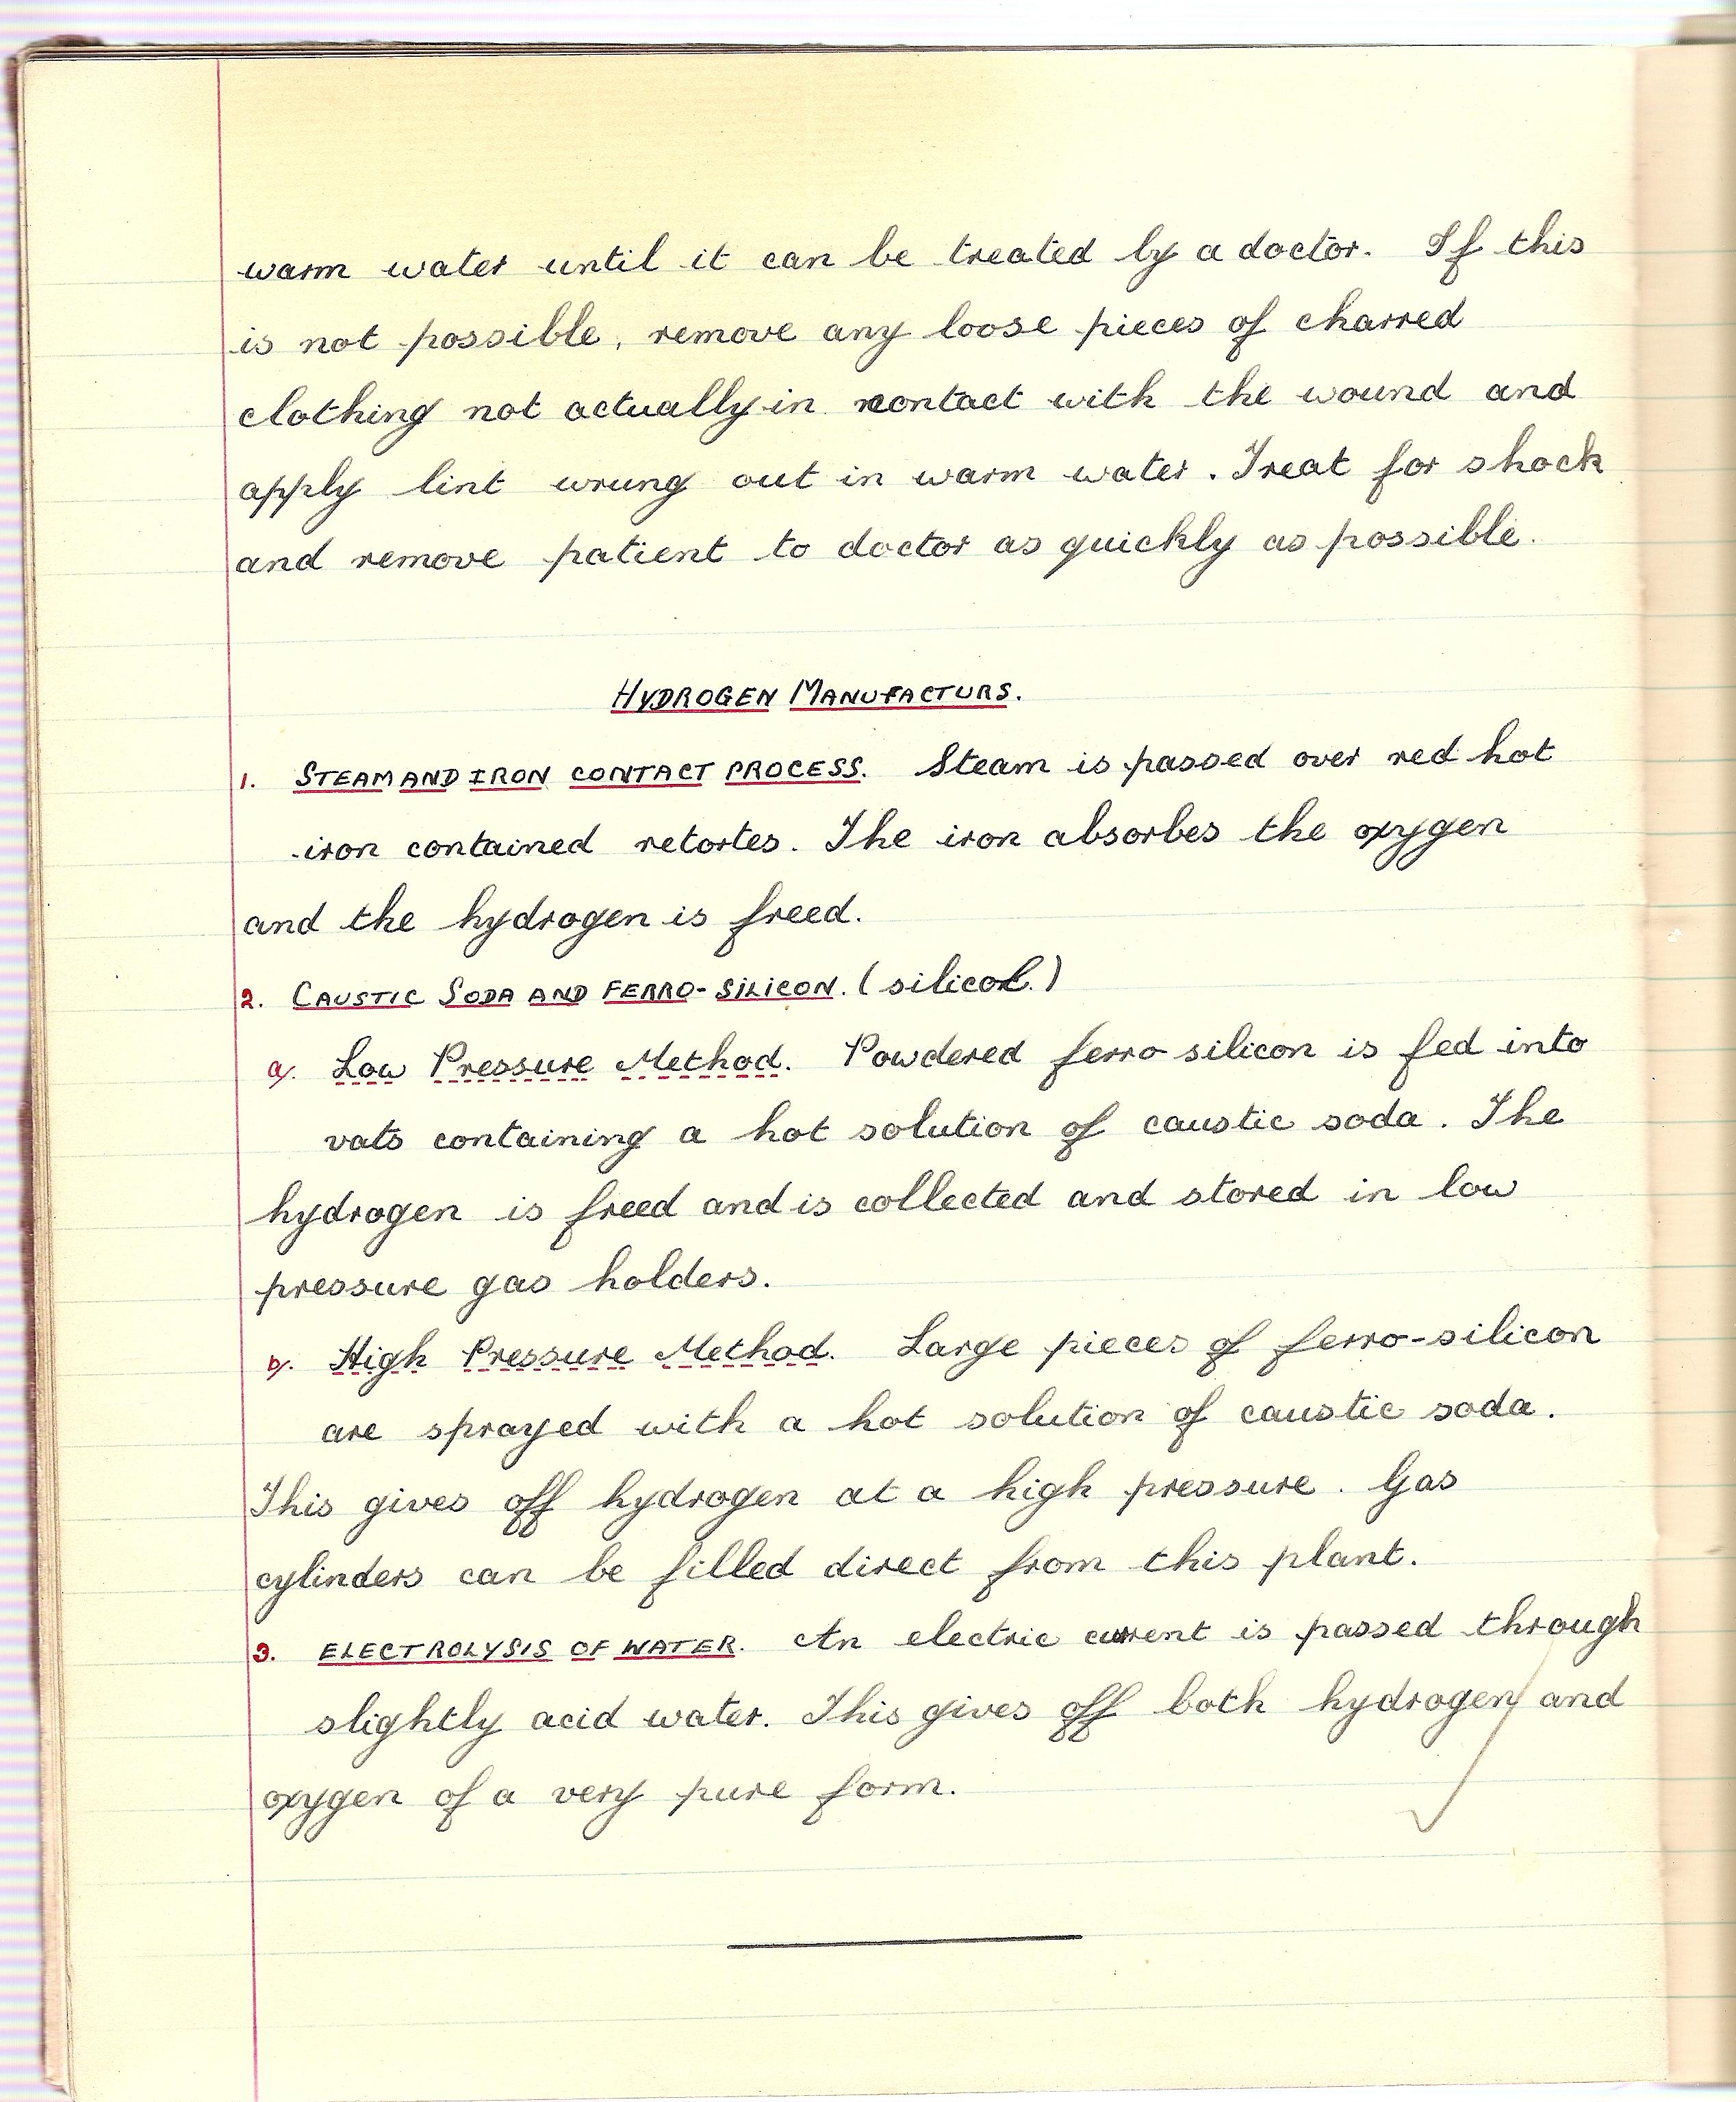 warm water until it can be treated by a doctor. If this
is not possible, remove any loose pieces of charred
clothing not actually in contact with the wound and
apply lint wrung out in warm water. Treat for shock
and remove patient to doctor as quickly as possible.
HYDROGEN MANUFACTURS.
1. STEAM AND IRON CONTACT PROCESS. Steam is passed over red hot
iron contained retortes. The iron absorbes the oxygen
and the hydrogen is freed.
2. CAUSTIC SODA AND FERRO-SILICON. (silicol.)
a). Low Pressure Method. Powdered ferro silicon is fed into
vats containing a hot solution of caustic soda. The
hydrogen is freed and is collected and stored in low
pressure gas holders.
b). High Pressure Method. Large pieces of ferro-silicon
are sprayed with a hot solution of caustic soda.
This gives off hydrogen at a high pressure. Gas
cylinders can be filled direct from this plant.
3. ELECTROLYSIS OF WATER. An electric current is passed through
slightly acid water. This gives off both hydrogen and
oxygen of a very pure form.